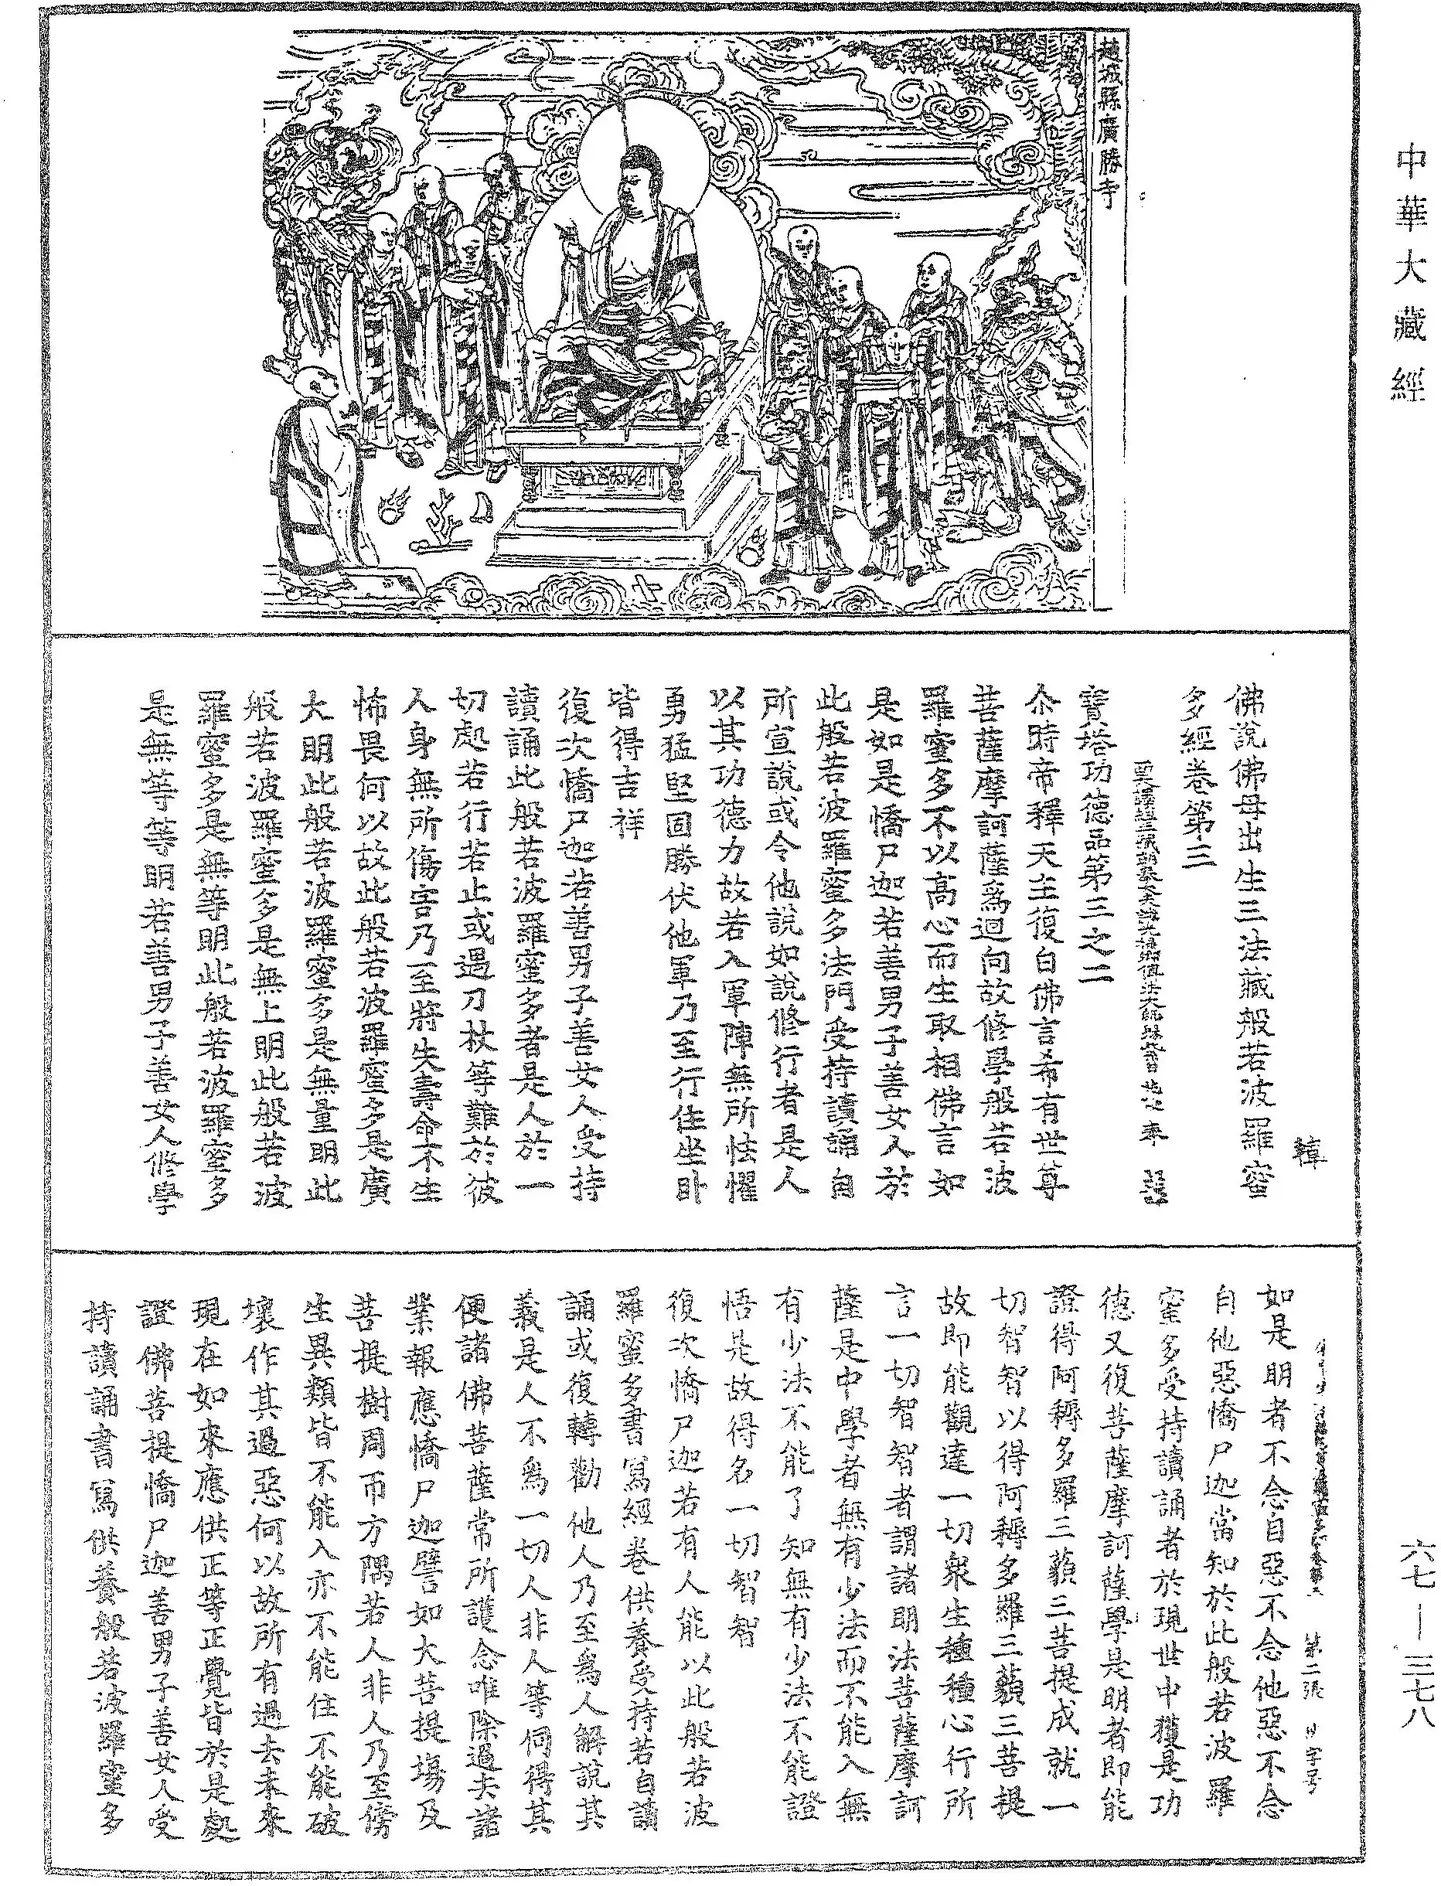 中華大藏經
趙城縣廣勝寺
佛說佛母出生三法藏般若波羅蜜
多經卷第三
寶塔功德品第三之二
尒時帝釋天主復白佛言希有世尊
菩薩摩訶薩爲迴向故修學般若波
羅蜜多不以高心而生取相佛言如
是如是憍尸迦若善男子善女人於
此般若波羅蜜多法門受持讀誦自
所宣說或令他說如說修行者是人
以其功德力故若入軍陣無所怯懼
勇猛堅固勝伏他軍乃至行住坐卧
皆得吉祥
復次憍尸迦若善男子善女人受持
讀誦此般若波羅蜜多者是人於一
切處若行若止或遇刀杖等難於彼
人身無所傷害乃至將失壽命不生
怖畏何以故此般若波羅蜜多是廣
大明此般若波羅蜜多是無量明此
般若波羅蜜多是無上明此般若波
羅蜜多是無等明此般若波羅蜜多
是無等等明若善男子善女人修學
如是明者不念自惡不念他惡不念
自他惡憍尸迦當知於此般若波羅
蜜多受持讀誦者於現世中獲是功
德又復菩薩摩訶薩學是明者即能
證得阿耨多羅三藐三菩提成就一
切智智以得阿耨多羅三藐三菩提
故即能觀達一切衆生種種心行所
言一切智智者謂諸明法菩薩摩訶
薩是中學者無有少法而不能入無
有少法不能了知無有少法不能證
悟是故得名一切智智
復次憍尸迦若有人能以此般若波
羅蜜多書寫經卷供養受持若自讀
誦或復轉勸他人乃至爲人解說其
義是人不爲一切人非人等伺得其
便諸佛菩薩常所護念唯除過去諸
業報應憍尸迦譬如大菩提場及
菩提樹周帀方隅若人非人乃至傍
生異類皆不能入亦不能住不能破
壞作其過惡何以故所有過去未來
現在如來應供正等正覺皆於是處
證佛菩提憍尸迦善男子善女人受
持讀誦書寫供養般若波羅蜜多
第二張
字号
六七—三七八